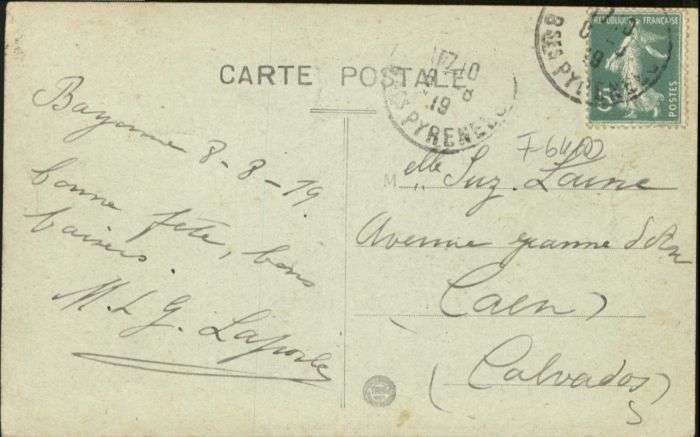 CARTE POSTALE
RÉPUBLIQUE FRANÇAISE
5c
POSTES
17 10
8
19
PYRENEES
PYRENEES
F6400
Bayonne 8-8-19.
bonne fête, bons
baisers.
M. L G. Laporte
M elle Suz. Laine
Avenue jeanne d'Arc
Caen)
(Calvados)